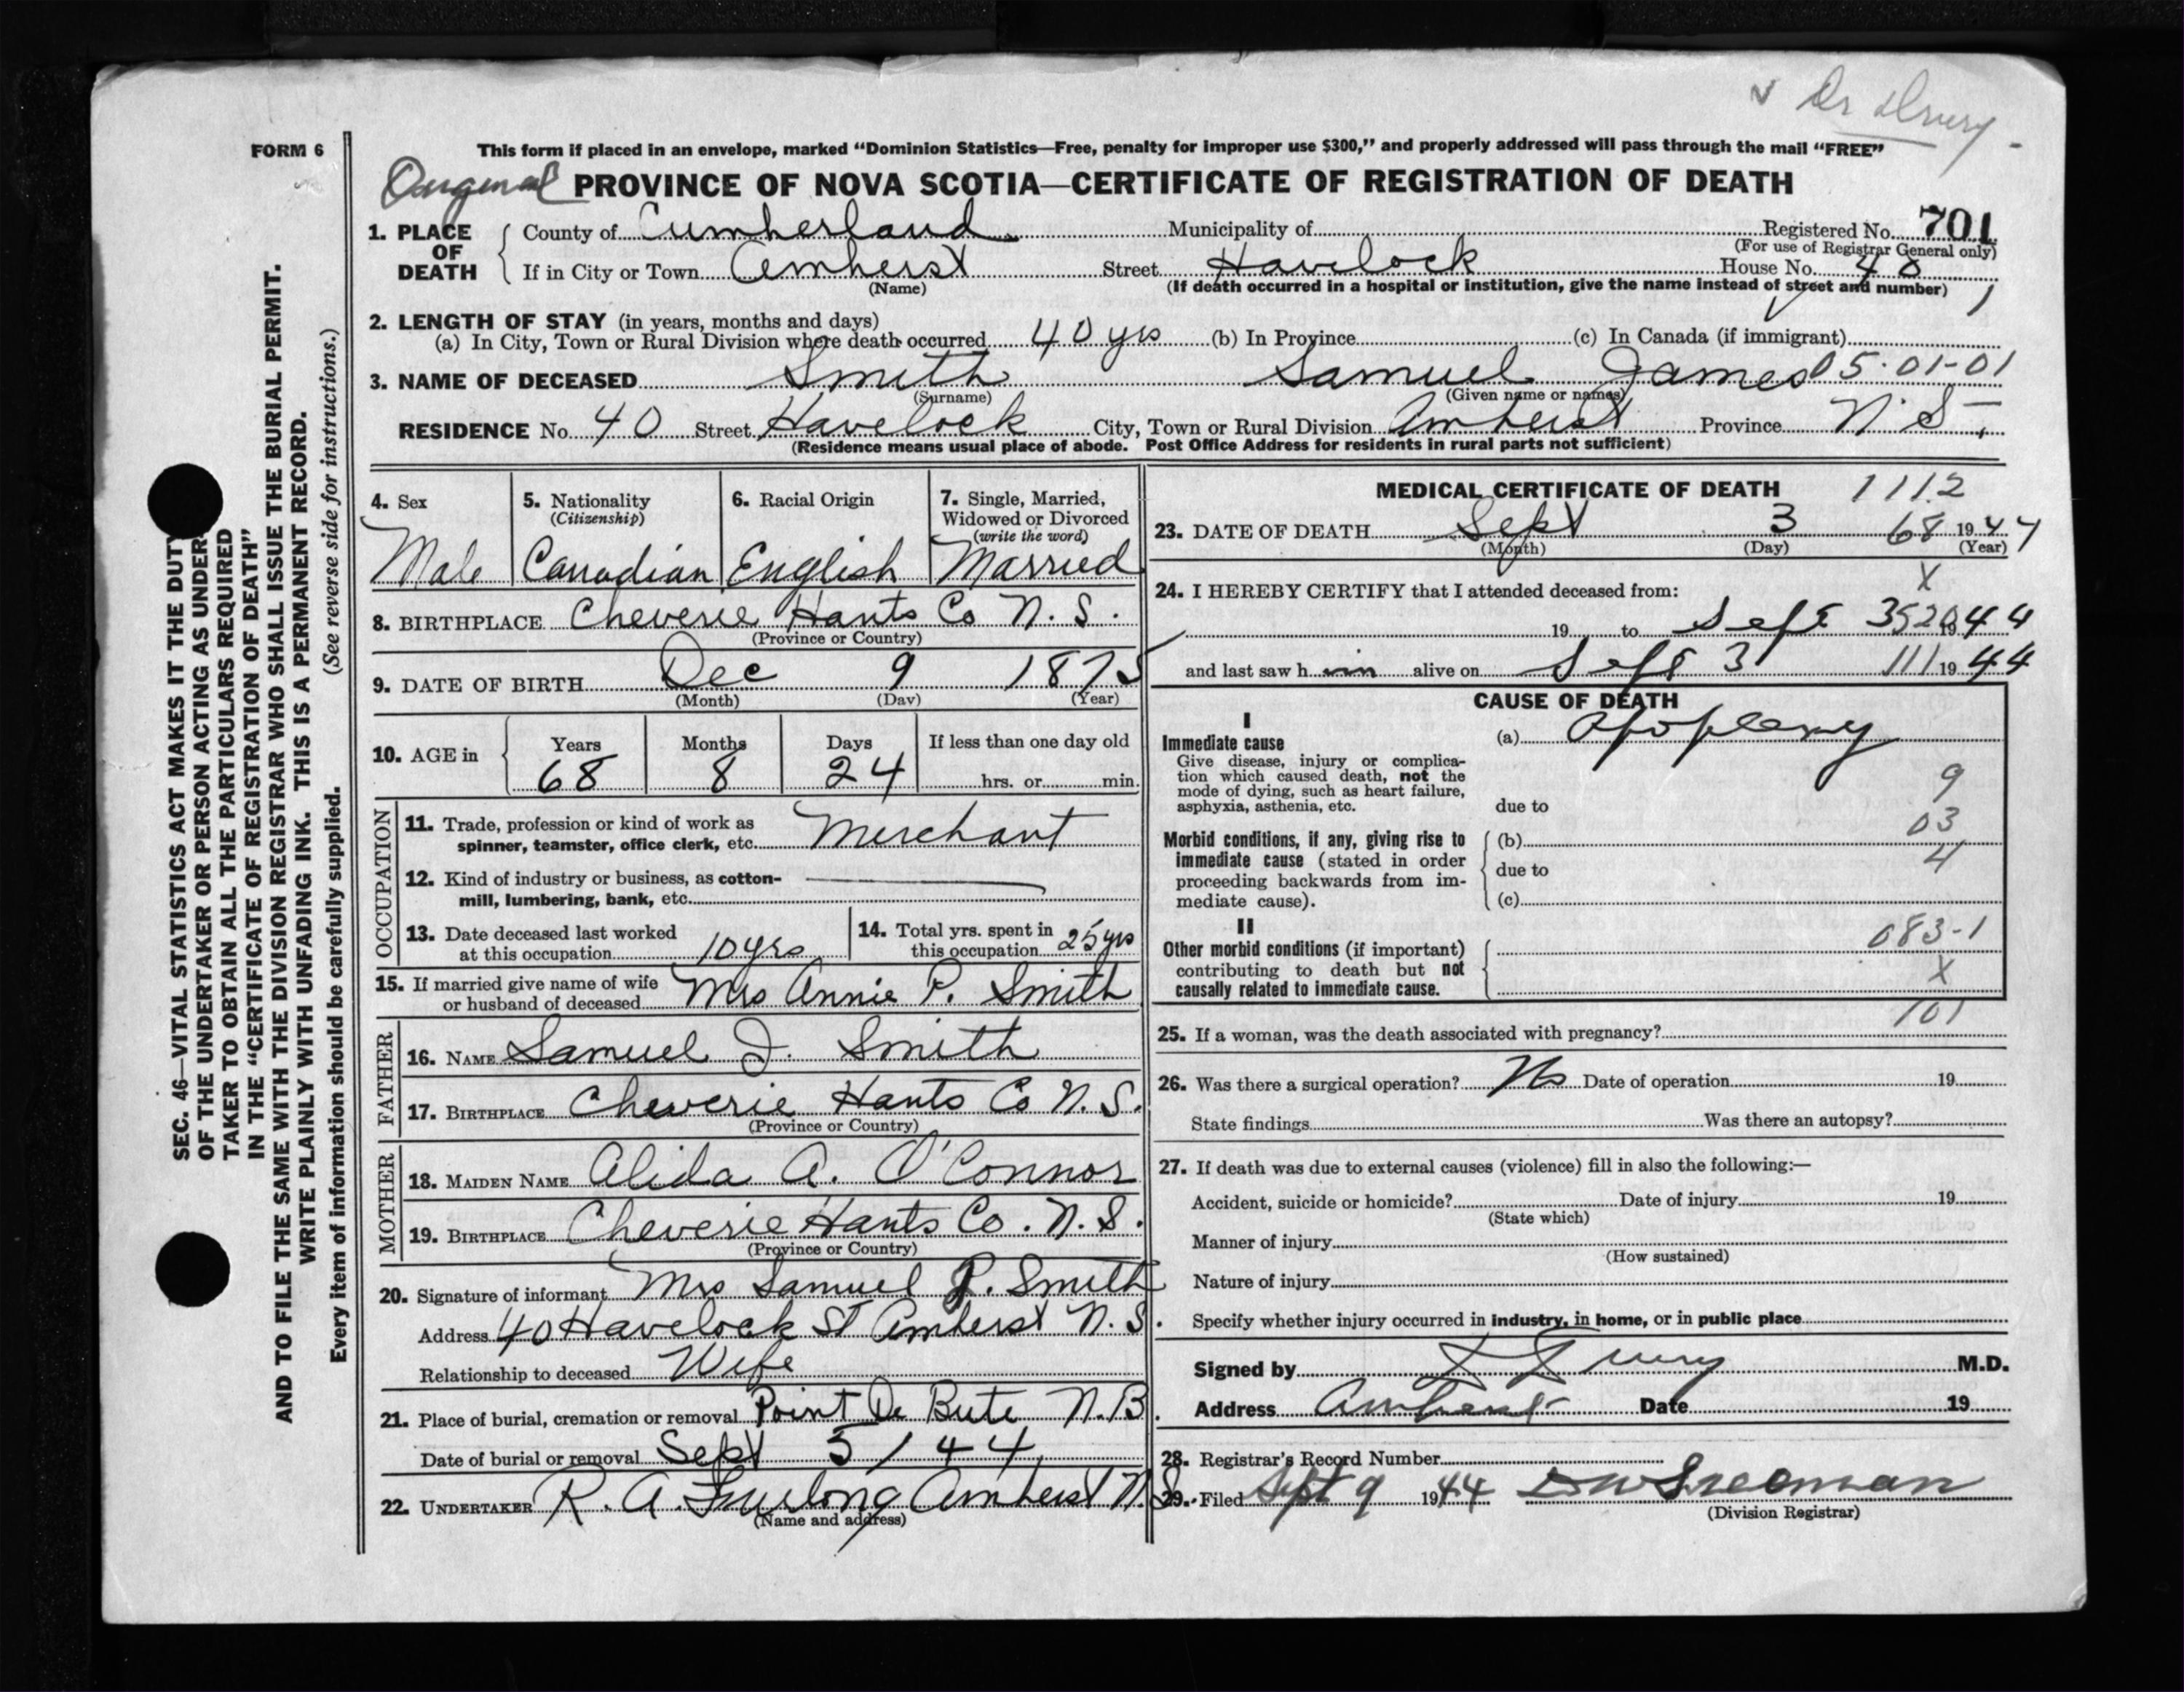 Dr Drury
FORM 6
This form if placed in an envelope, marked "Dominion Statistics—Free, penalty for improper use $300," and properly addressed will pass through the mail "FREE"
Original PROVINCE OF NOVA SCOTIA—CERTIFICATE OF REGISTRATION OF DEATH
1. PLACE OF DEATH { County of Cumberland Municipality of Registered No. 701
(For use of Registrar General only)
If in City or Town Amherst Street Havelock House No. 40
(Name) (If death occurred in a hospital or institution, give the name instead of street and number) 1
2. LENGTH OF STAY (in years, months and days)
(a) In City, Town or Rural Division where death occurred 40 yrs (b) In Province (c) In Canada (if immigrant)
3. NAME OF DECEASED Smith Samuel James 05-01-01
(Surname) (Given name or names)
RESIDENCE No. 40 Street Havelock City, Town or Rural Division Amherst Province N.S.
(Residence means usual place of abode. Post Office Address for residents in rural parts not sufficient)
4. Sex 5. Nationality 6. Racial Origin 7. Single, Married,
(Citizenship) Widowed or Divorced
(write the word)
Male Canadian English Married
8. BIRTHPLACE Cheverie Hants Co N.S.
(Province or Country)
9. DATE OF BIRTH Dec 9 1875
(Month) (Day) (Year)
10. AGE in { Years Months Days If less than one day old
68 8 24 hrs. or min.
OCCUPATION
11. Trade, profession or kind of work as
spinner, teamster, office clerk, etc. Merchant
12. Kind of industry or business, as cotton-
mill, lumbering, bank, etc.
13. Date deceased last worked
at this occupation 10 yrs
14. Total yrs. spent in
this occupation 25 yrs
15. If married give name of wife
or husband of deceased Mrs Annie P. Smith
FATHER
16. NAME Samuel J. Smith
17. BIRTHPLACE Cheverie Hants Co N.S.
(Province or Country)
MOTHER
18. MAIDEN NAME Alida A. O'Connor
19. BIRTHPLACE Cheverie Hants Co. N.S.
(Province or Country)
20. Signature of informant Mrs Samuel J. Smith
Address 40 Havelock St Amherst N.S.
Relationship to deceased Wife
21. Place of burial, cremation or removal Point De Bute N.B.
Date of burial or removal Sept 5/44
22. UNDERTAKER R. A. Furlong Amherst N.S.
(Name and address)
MEDICAL CERTIFICATE OF DEATH 1112
23. DATE OF DEATH Sept 3 68 1944
(Month) (Day) (Year)
X
24. I HEREBY CERTIFY that I attended deceased from:
19 to Sept 3 520 1944
and last saw h im alive on Sept 3 111 1944
CAUSE OF DEATH
I
Immediate cause (a) Apoplexy
Give disease, injury or complica-
tion which caused death, not the
mode of dying, such as heart failure,
asphyxia, asthenia, etc. due to
9
03
Morbid conditions, if any, giving rise to (b)
4
immediate cause (stated in order
proceeding backwards from im- due to
mediate cause). (c)
II 083-1
Other morbid conditions (if important)
contributing to death but not X
causally related to immediate cause.
101
25. If a woman, was the death associated with pregnancy?
26. Was there a surgical operation? No Date of operation 19
State findings Was there an autopsy?
27. If death was due to external causes (violence) fill in also the following:—
Accident, suicide or homicide? Date of injury 19
(State which)
Manner of injury
(How sustained)
Nature of injury
Specify whether injury occurred in industry, in home, or in public place
Signed by Drury M.D.
Address Amherst Date 19
28. Registrar's Record Number
29. Filed Sept 9 1944
(Division Registrar)
SEC. 46—VITAL STATISTICS ACT MAKES IT THE DUTY
OF THE UNDERTAKER OR PERSON ACTING AS UNDER-
TAKER TO OBTAIN ALL THE PARTICULARS REQUIRED
IN THE "CERTIFICATE OF REGISTRATION OF DEATH"
AND TO FILE THE SAME WITH THE DIVISION REGISTRAR WHO SHALL ISSUE THE BURIAL PERMIT.
WRITE PLAINLY WITH UNFADING INK. THIS IS A PERMANENT RECORD.
Every item of information should be carefully supplied. (See reverse side for instructions.)